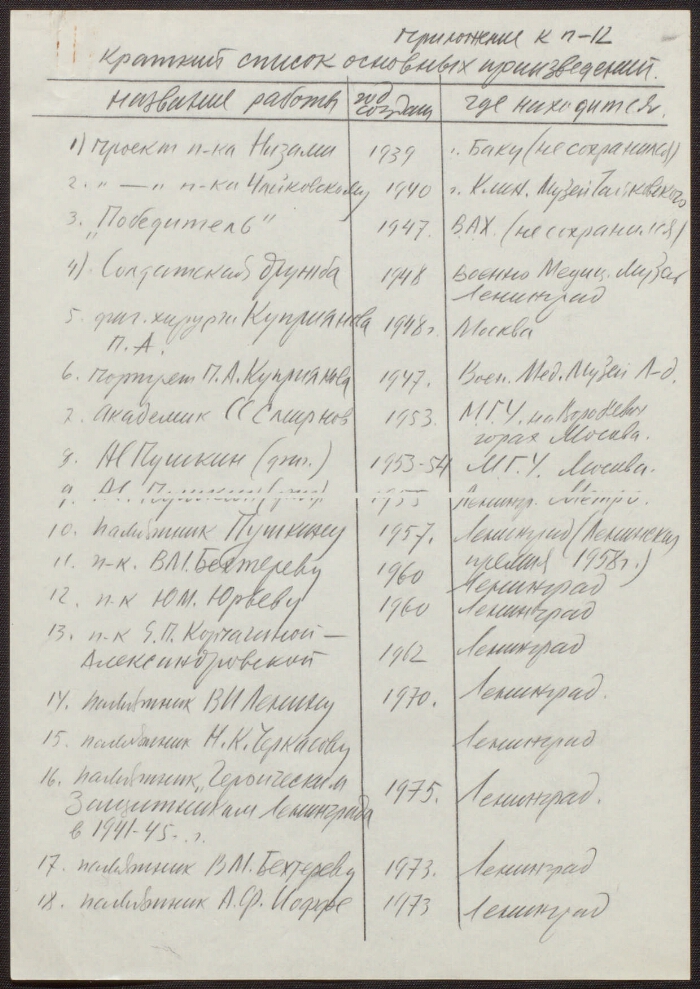 Приложение к п-12
Краткий список основных произведений.
Название работы год создан где находится.
1) Проект п-ка Низами 1939 г. Баку (не сохранился)
2. " — " п-ка Чайковскому 1940 г. Клин. Музей Чайковского
3. „Победитель" 1947. ВАХ. (не сохранился)
4). Солдатская дружба 1948 Военно Медиц. Музей
Ленинград
5. фиг. хирурга Куприянова 1948 г. Москва
П.А.
6. Портрет П.А. Куприянова 1947. Воен. Мед. Музей Л-д.
7. Академик СС Смирнов 1953. М.Г.У. на Воробьевых
горах Москва.
8. АС Пушкин (фиг.) 1953-54 М.Г.У. Москва.
9. АС. Пушкин (фиг) 1955 Ленингр. Метро.
10. памятник Пушкину 1957. Ленинград (Ленинская
премия 1958 г.)
11. п-к. В.М. Бехтереву 1960 Ленинград
12. п-к Ю.М. Юрьеву 1960 Ленинград
13. п-к Е.П. Корчагиной —
Александровской 1962 Ленинград
14. памятник ВИ Ленину 1970. Ленинград.
15. памятник Н.К. Черкасову Ленинград
16. памятник „Героическим
Защитникам Ленинграда 1975. Ленинград.
в 1941-45-. г.
17. памятник В.М. Бехтереву 1973. Ленинград
18. памятник А.Ф. Иоффе 1973 Ленинград